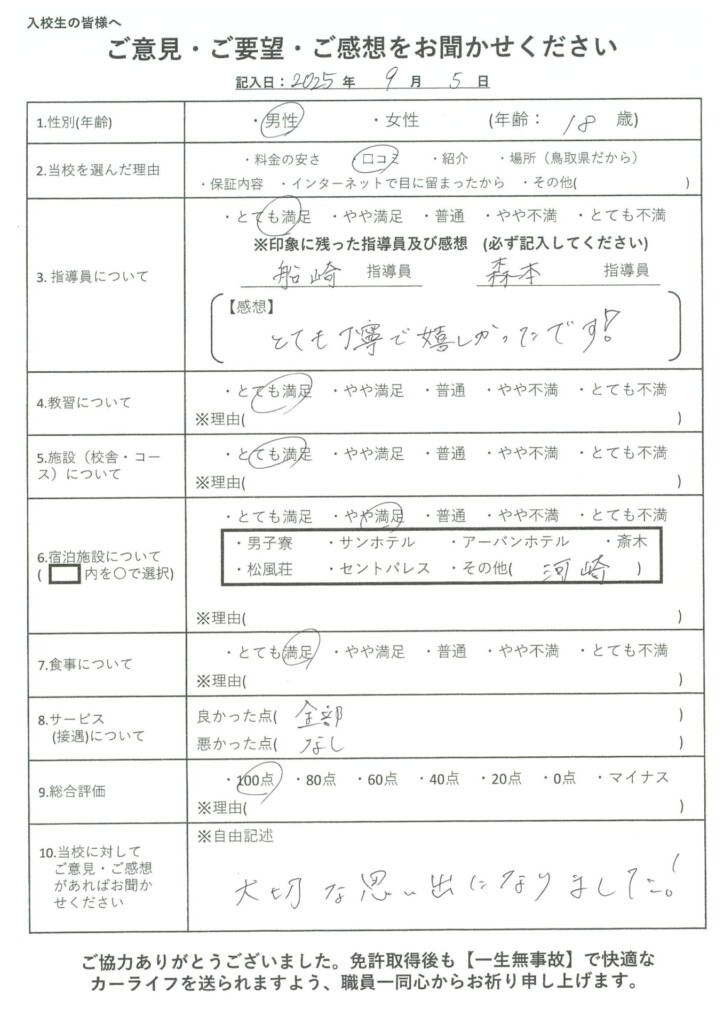 入校生の皆様へ
ご意見・ご要望・ご感想をお聞かせください
記入日：2025年 9月 5日
1.性別(年齢) ・男性 ・女性 (年齢： 18 歳)
2.当校を選んだ理由 ・料金の安さ ・口コミ ・紹介 ・場所（鳥取県だから）
・保証内容 ・インターネットで目に留まったから ・その他( )
3. 指導員について ・とても満足 ・やや満足 ・普通 ・やや不満 ・とても不満
※印象に残った指導員及び感想 (必ず記入してください)
船崎 指導員 森本 指導員
【感想】
とても丁寧で嬉しかったです!
4.教習について ・とても満足 ・やや満足 ・普通 ・やや不満 ・とても不満
※理由( )
5.施設（校舎・コース）について ・とても満足 ・やや満足 ・普通 ・やや不満 ・とても不満
※理由( )
6.宿泊施設について
( 内を〇で選択) ・とても満足 ・やや満足 ・普通 ・やや不満 ・とても不満
・男子寮 ・サンホテル ・アーバンホテル ・斎木
・松風荘 ・セントパレス ・その他( 河崎 )
※理由( )
7.食事について ・とても満足 ・やや満足 ・普通 ・やや不満 ・とても不満
※理由( )
8.サービス
(接遇)について 良かった点( 全部 )
悪かった点( なし )
9.総合評価 ・100点 ・80点 ・60点 ・40点 ・20点 ・0点 ・マイナス
※理由( )
10.当校に対して
ご意見・ご感想
があればお聞か
せください ※自由記述
大切な思い出になりました!
ご協力ありがとうございました。免許取得後も【一生無事故】で快適な
カーライフを送られますよう、職員一同心からお祈り申し上げます。